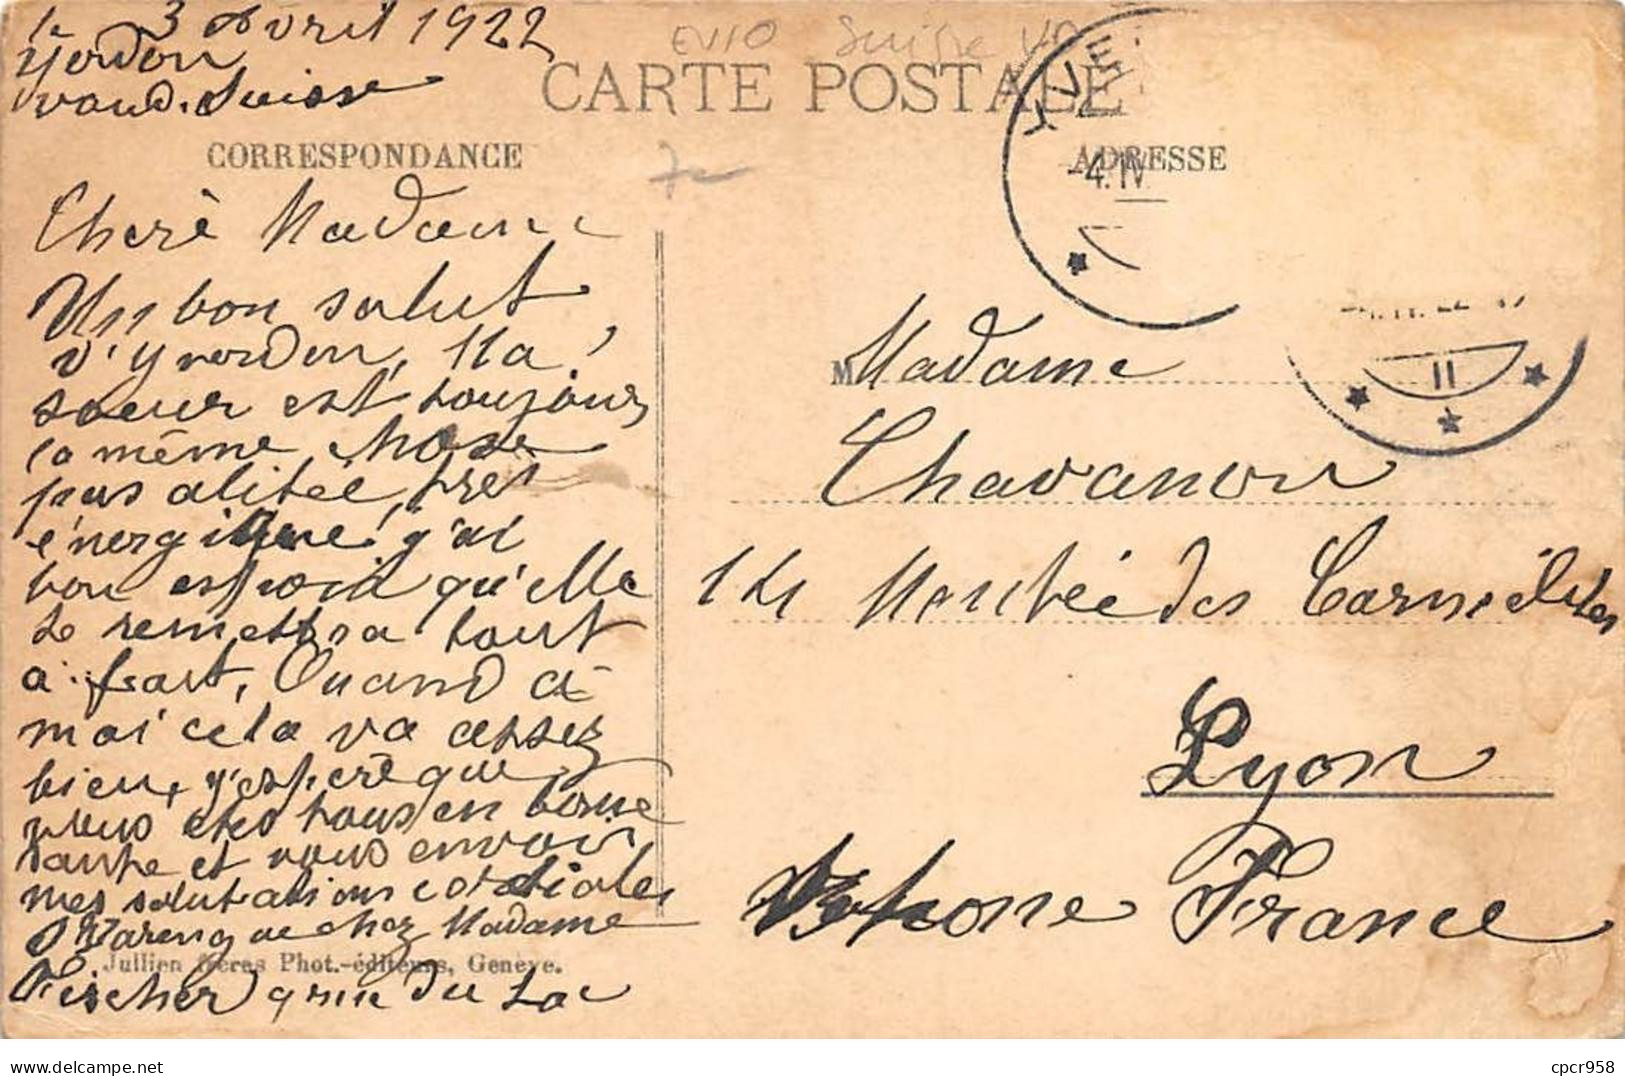 le 3 Avril 1922
Yverdon
vaud. Suisse
EV10 Suisse VD
CARTE POSTALE
CORRESPONDANCE
ADRESSE
YVE
-4. IV
Cherè Madame
Un bon salut
d'yverdon, Ma
soeur est toujours
la même chose
pas alitée, tres
énergique, j'ai
bon espoir qu'elle
se remettra tout
a fait, Quand a
moi cela va assez
bien, j'esperè que
vous etes tous en bonne
santée et vous envoie
mes salutations cordiales
Varengue chez Madame
Jullien frères Phot.-éditeurs, Genève.
Fischer 9 rue du Lac
M Madame
Chavanon
14 Montée des Carmélites
Lyon
Rhone France
-4. IV. 22
II
cpcr958